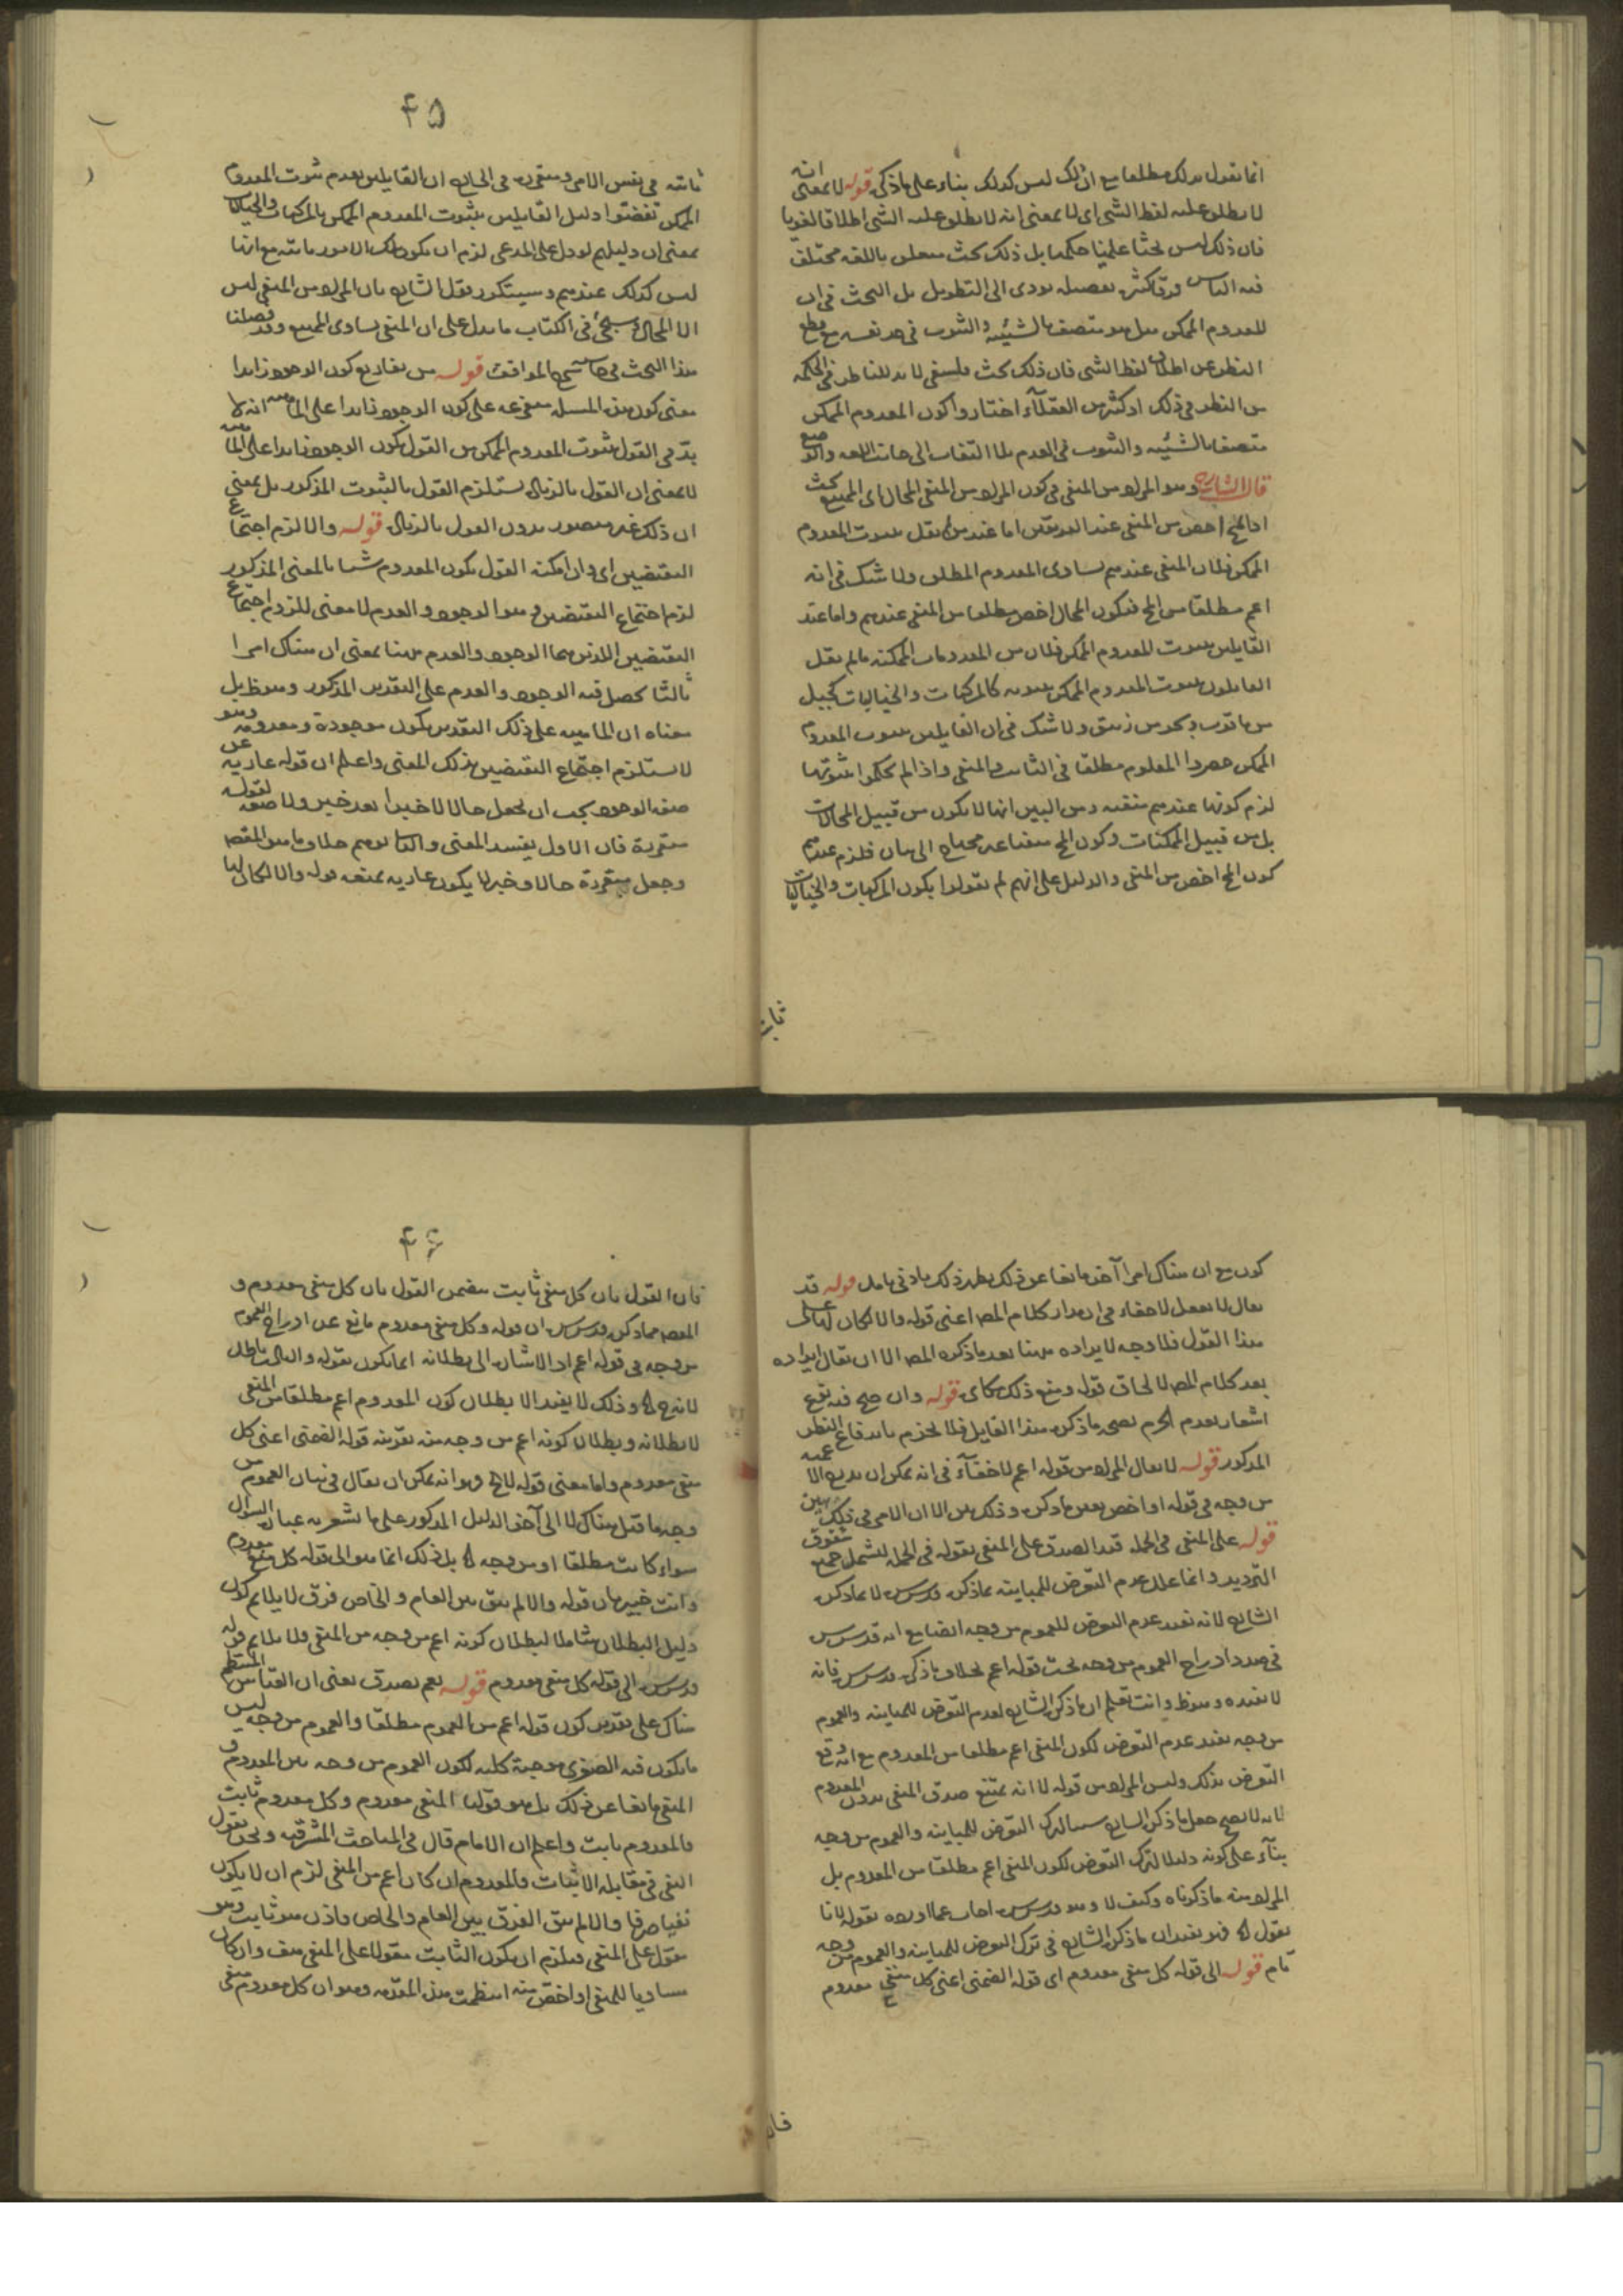 انما نقول بذلك مطلقا مع ان ذلك ليس كذلك بناء على ما ذكر قوله لا بمعنى انه
لا يطلق عليه لفظ الشى اى لا بمعنى انه لا يطلق عليه الشى اطلاقا لغويا
فان ذلك ليس بحثا علميا حكميا بل ذلك بحث متعلق باللغه مختلف
فيه الناس تفصيله يودى الى التطويل بل البحث فى ان
المعدوم الممكن هل هو متصف بالشيئيه والثبوت فى حد نفسه مع قطع
النظر عن اطلاق لفظ الشى فان ذلك بحث فلسفى لا بد للناظر فى الحكمه
من النظر فى ذلك اذ كثير من العقلاء اختاروا كون المعدوم الممكن
متصفا بالشيئيه والثبوت فى العدم بلا التفات الى جانب اللغه والوضع
قال الشارح وهو المراد من المنفى فى كون المراد من المنفى المحال اى الممتنع بحث
اذ المح اخص من المنفى عند الفريقين اما عند من لم يقل بثبوت المعدوم
الممكن فلان المنفى عندهم يساوى المعدوم المطلق ولا شك فى انه
اعم مطلقا من المح فيكون المحال اخص مطلقا من المنفى عندهم واما عند
القايلين بثبوت المعدوم الممكن فلان من المعدومات الممكنه ما لم يقل
القايلون بثبوت المعدوم الممكن بثبوته كالمركبات والخياليات كجبل
من ياقوت وبحر من زيبق ولا شك فى ان القايلين بثبوت المعدوم
الممكن حصروا المعلوم مطلقا فى الثابت والمنفى واذا لم يحكموا بثبوتها
لزم كونها عندهم منفيه ومن البين انها لا يكون من قبيل المحالات
بل من قبيل الممكنات وكون المح منفيا غير محتاج الى بيان فلزم عندهم
كون المح اخص من المنفى والدليل على انهم لم يقولوا بكون المركبات والخياليات
ثابته
۴۵
ثابته فى نفس الامر ومتقرره فى الخارج ان القايلين بعدم ثبوت المعدوم
الممكن نقضوا دليل القايلين بثبوت المعدوم الممكن بالمركبات والخياليات
بمعنى ان دليلهم لو دل على المدعى لزم ان يكون تلك الامور ثابته مع انها
ليس كذلك عندهم وسيتكرر نقل الشارح بان المراد من المنفى ليس
الا المحال وسيجئ فى الكتاب ما يدل على ان المنفى يساوى الممتنع وقد فصلنا
هذا البحث فى حاشيه شرح المواقف قوله من تفاريع كون الوجود زايدا
معنى كون هذه المسله متفرعه على كون الوجود زايدا على الماهيه انه لا
بد فى القول بثبوت المعدوم الممكن من القول بكون الوجود زايدا على الماهيه
لا بمعنى ان القول بالزياده يستلزم القول بالثبوت المذكور بل بمعنى
ان ذلك غير متصور بدون القول بالزياده قوله والا لزم اجتماع
النقيضين اى وان امكنه القول بكون المعدوم شيئا بالمعنى المذكور
لزم اجتماع النقيضين وهو الوجود والعدم لا معنى للزوم اجتماع
النقيضين اللذين هما الوجود والعدم هنا بمعنى ان هناك امرا
ثالثا يحصل فيه الوجود والعدم على التقدير المذكور وهو ظ بل
معناه ان الماهيه على ذلك التقدير يكون موجودة ومعدومه وهو
لا يستلزم اجتماع النقيضين بذلك المعنى واعلم ان قوله عاريه عن
صفه الوجود يجب ان يجعل حالا لا خبرا بعد خبر ولا صفه لقوله
متقررة فان الاول يفسد المعنى والثانى يوهم خلاف ما هو المقصود
وجعل متقررة حالا وخبر لا يكون عاريه يمنعه قوله والا لكان لها
كون مع ان هناك امرا آخر مانعا عن ذلك يظهر ذلك بادنى تامل قوله قد
يقال لا يعقل لا خفاء فى ان مدار كلام المص اعنى قوله والا لكان لها على
هذا القول فلا وجه لايراده هنا بعد ما ذكره المص الا ان يقال ايراده
بعد كلام المص لالحاق قوله ومنع ذلك مكابره قوله وان صح فيه نوع
اشعار بعدم الجزم بصحه ما ذكره هذا القايل فلا يجزم باندفاع النظر
المذكور قوله لا يقال المراد من قوله اعم لا خفاء فى انه يمكن ان يدرج الاعميه
من وجه فى قوله او اخص بعين ما ذكره وذلك بين الا ان الامر فى ذلك هين
قوله على المنفى فى الجمله قيد الصدق على المنفى بقوله فى الجمله ليشمل جميع شقوق
الترديد وانما علل عدم التعرض للمباينه بما ذكره قدس سره لا بما ذكره
الشارح لانه يفيد عدم التعرض للعموم من وجه ايضا مع انه قدس سره
فى صدد ادراج العموم من وجه تحت قوله اعم بخلاف ما ذكره قدس سره فانه
لا يفيده وهو ظ وانت تعلم ان ما ذكره الشارح لعدم التعرض للمباينه والعموم
من وجه يفيد عدم التعرض لكون المنفى اعم مطلقا من المعدوم مع انه وقع
التعرض بذلك وليس المراد من قوله لا انه يمتنع صدق المنفى بدون المعدوم
لانه لا يصح جعل ما ذكره الشارح سببا لترك التعرض للمباينه والعموم من وجه
بناء على كونه دليلا لترك التعرض لكون المنفى اعم مطلقا من المعدوم بل
المراد منه ما ذكرناه وكيف لا وهو قدس سره اجاب عما اورده بقوله لانا
نقول اه فهو يفيد ان ما ذكره الشارح فى ترك التعرض للمباينه والعموم من وجه
تام قوله الى قوله كل منفى معدوم اى قوله الضمنى اعنى كل منفى معدوم
فان
۴۶
فان القول بان كل منفى ثابت متضمن القول بان كل منفى معدوم و
المقصود مما ذكره قدس سره ان قوله وكل منفى معدوم مانع عن ادراج العموم
من وجه فى قوله اعم اذ الاشاره الى بطلانه انما يكون بقوله والتالى باطل
لانه ح اه وذلك لا يفيد الا بطلان كون المعدوم اعم مطلقا من المنفى
لا بطلانه وبطلان كونه اعم من وجه منه بقرينه قوله الضمنى اعنى كل
منفى معدوم واما معنى قوله لانا اه وهو انه يمكن ان يقال فى بيان العموم من
وجه ما قيل هناك لا الى آخر الدليل المذكور على ما يشعر به عبارة السؤال
سواء كانت مطلقا او من وجه اه بل ذلك انما هو الى قوله كل منفى معدوم
وانت خبير بان قوله والا لم يبق بين العام والخاص فرق لا يلايم كون
دليل البطلان شاملا لبطلان كونه اعم من وجه من المنفى ولا يلايم قوله
قدس سره الى قوله كل منفى معدوم قوله نعم يصدق يعنى ان القياس المنتظم
هناك على تقدير كون قوله اعم من العموم مطلقا والعموم من وجه ليس
ما يكون فيه الصغرى موجبة كليه لكون العموم من وجه بين المعدوم و
المنفى مانعا عن ذلك بل هو قولنا المنفى معدوم وكل معدوم ثابت
فالمعدوم ثابت واعلم ان الامام قال فى المباحث المشرقيه ونحن نقول
النفى فى مقابله الاثبات فالمعدوم ان كان اعم من المنفى لزم ان لا يكون
نفيا صرفا والا لم يبق الفرق بين العام والخاص فاذن هو ثابت وهو
مقول على المنفى فيلزم ان يكون الثابت مقولا على المنفى هف وان كان
مساويا للمنفى او اخص منه انتظمت هذه المقدمه وهو ان كل معدوم منفى